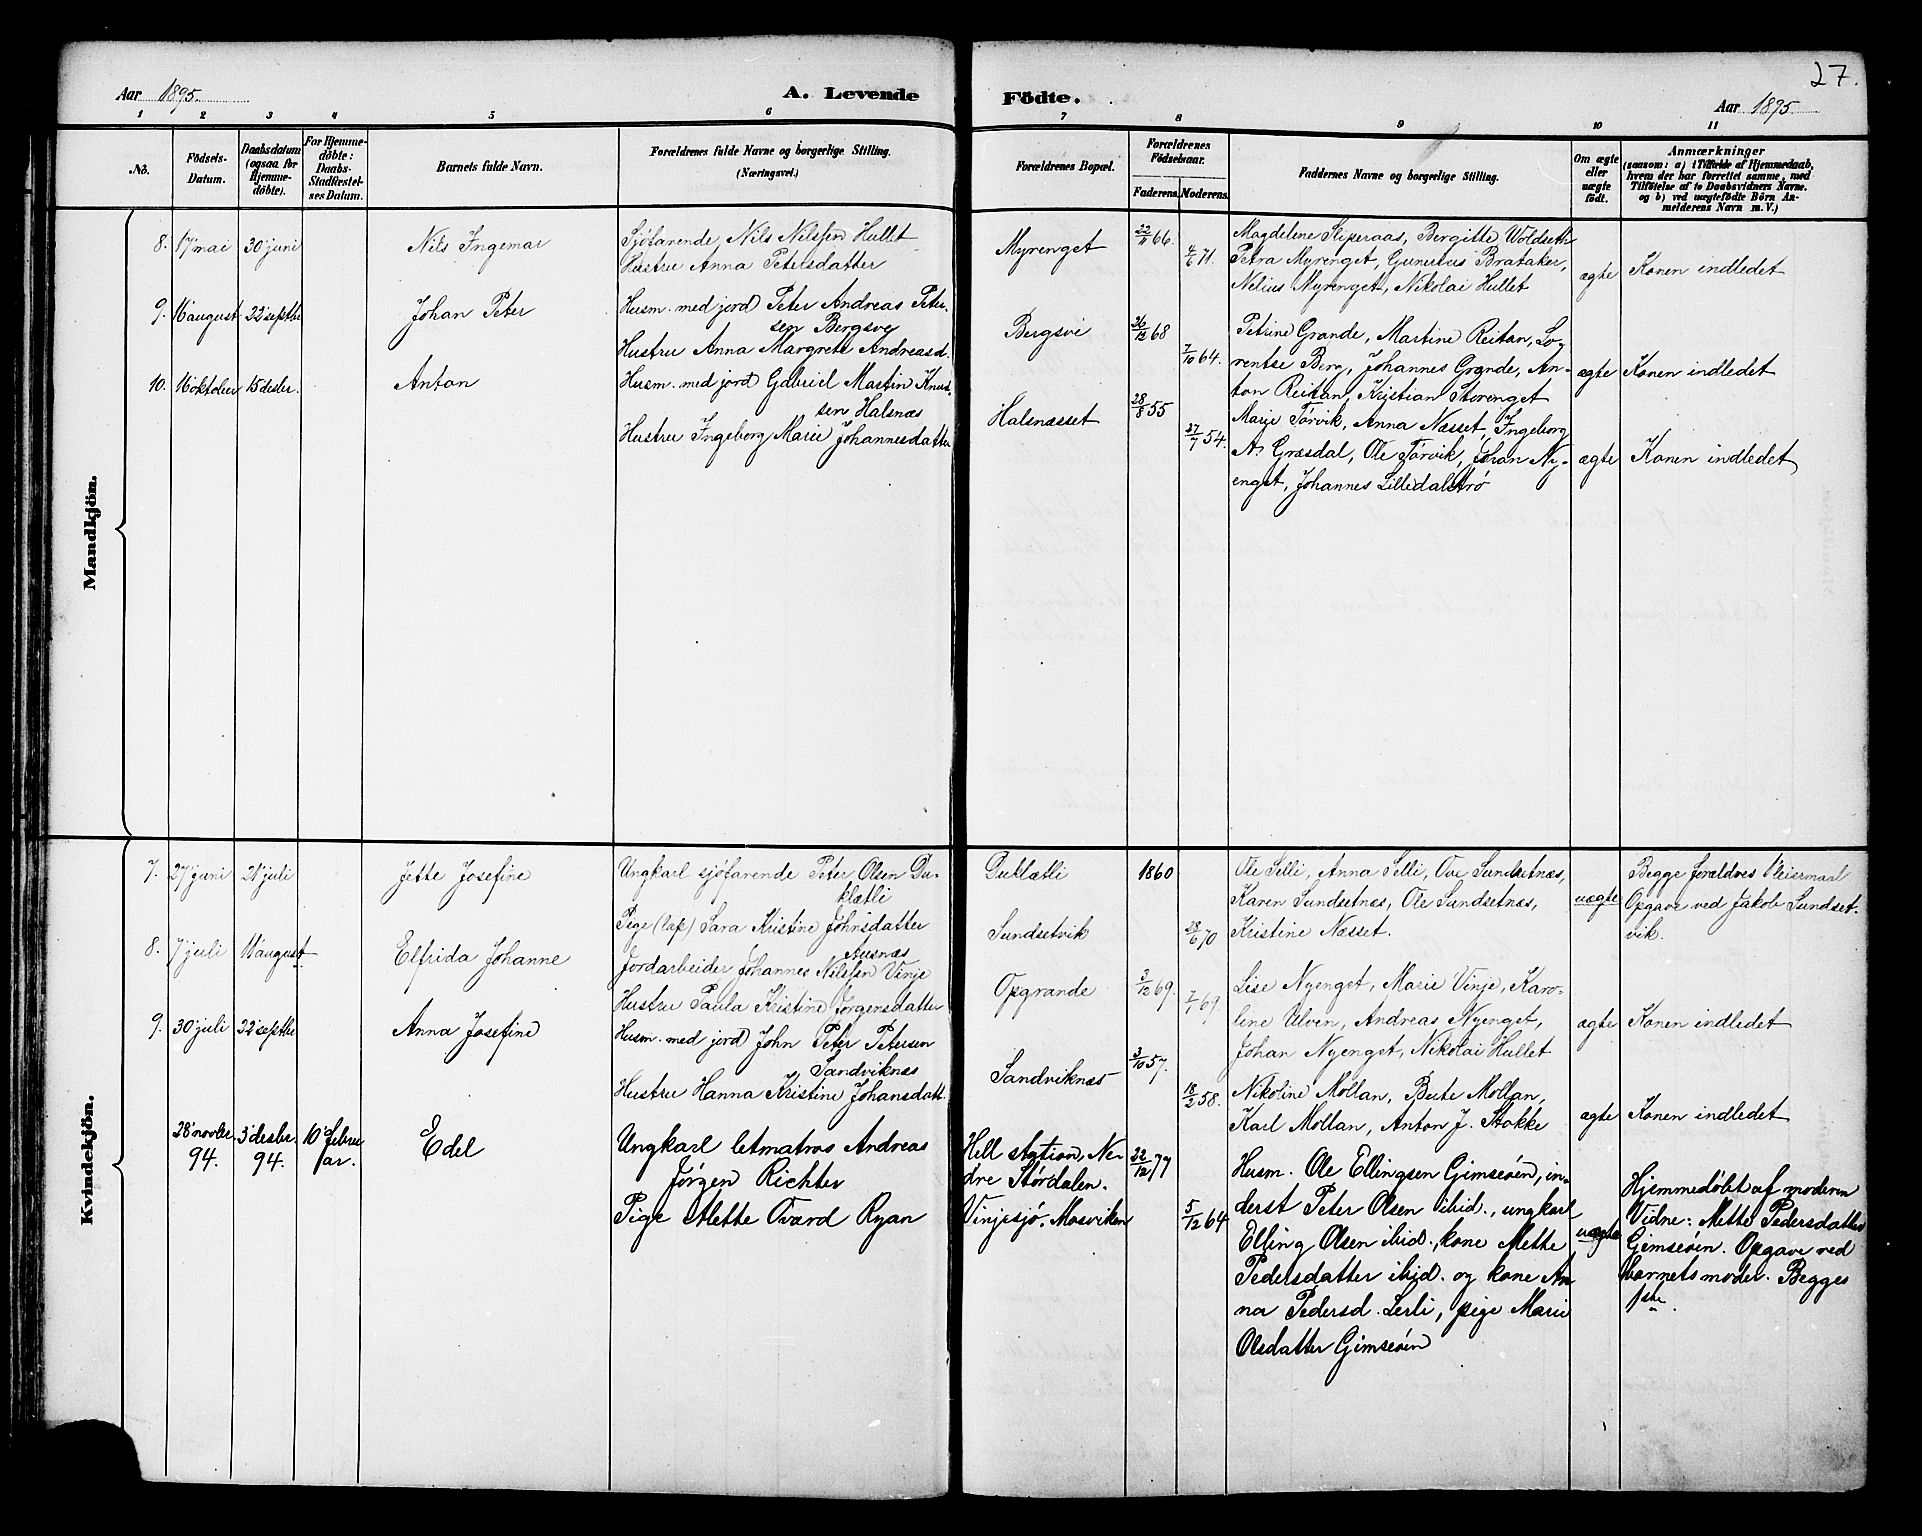 27.
Aar 1895.
A. Levende
Födte.
Aar 1895.
1 2 3 4 5 6 7 8 9 10 11
No.
Födsels-
Datum.
Daabsdatum
(ogsaa for
Hjemme-
döbte).
For Hjemme-
döbte:
Daabs-
Stadfæstel-
ses Datum.
Barnets fulde Navn.
Forældrenes fulde Navne og borgerlige Stilling.
(Næringsvei.)
Forældrenes Bopæl.
Forældrenes
Födselsaar.
Faderens.
Moderens.
Faddernes Navne og borgerlige Stilling.
Om ægte
eller
uægte
födt.
Anmærkninger
(saasom: a) i Tilfælde af Hjemmedaab,
hvem der har forrettet samme, med
Tilföielse af to Daabsvidners Navne.
og b) ved uægtefödte Börn An-
melderens Navn m. V.)
Mandkjön.
8. 17 mai 30 juni
Nils Ingemar
Sjöfarende Nils Nilssen Hullet
Hustru Anna Petersdatter
Myrenget
22/11 66.
4/6 71.
Magdelene Sliperaas, Bergitte Woldseth
Petra Myrenget, Gunerius Brataker,
Nelius Myrenget, Nikolai Hullet
ægte
Konen indledet
9. 16 august 22 septbr
Johan Peter
Husm. med jord Peter Andreas Peter-
sen Bergsve
Hustru Anna Margrete Andreasd.
Bergsvi
26/12 68
7/10 64.
Petrine Grande, Martine Reitan, Lo-
rentse Berg, Johannes Grande, An-
ton Reitan, Kristian Storenget
ægte
Konen indledet
10. 16 oktober 15 desbr.
Anton
Husm. med jord Gabriel Martin Knut-
sen Halsnæs
Hustru Ingeborg Marie Johannesdatter
Halsnæsset
28/8 55
27/7 54.
Marie Törvik, Anna Næsset, Ingeborg
A. Græsdal, Ole Törvik, Johan Ny-
enget, Johannes Lilledalströ
ægte
Konen indledet
Kvindekjön.
7. 27 juni 21 juli
Jette Josefine
Ungkarl sjöfarende Peter Olsen Du-
klætli
Pige (lap) Sara Kristine Johnsdatter
Ausnæs
Duklætli
Sundsetvik
1860
28/6 70
Ole Selli, Anna Selli, Ove Sundsetnæs,
Karen Sundsetnæs, Ole Sundsetnæs,
Kristine Næsset.
uægte
Begge forældres leiermaal
Opgave ved Jakob Sundset-
vik.
8. 7 juli 11 august
Elfrida Johanne
Jordarbeider Johannes Nilssen Vinje
Hustru Paula Kristine Jörgensdatter
Opgrande
3/12 69.
7/1 69.
Lise Nyenget, Marie Vinje, Karo-
line Ulven, Andreas Nyenget,
Johan Nyenget, Nikolai Hullet
ægte
Konen indledet
9. 30 juli 22 septbr
Anna Josefine
Husm. med jord John Peter Petersen
Sandviknæs
Hustru Hanna Kristine Johansdatt.
Sandviknæs
3/10 57.
18/2 58.
Nikoline Mollan, Berte Mollan,
Karl Mollan, Anton J. Stokke
ægte
Konen indledet
28 novbr.
94.
3 desbr.
94.
10 febru
ar.
Edel
Ungkarl letmatros Andreas
Jørgen Richter
Pige Mette Tværd Ryan
Hell station, Ne-
dre Størdalen.
Vinjesjö, Mosviken
22/12 77
5/12 64
Husm. Ole Ellingsen Gimseöen, in-
derst Peter Olsen ibid., ungkarl
Elling Olsen ibid., kone Mette
Pedersdatter ibid. og kone An-
na Pedersd. Lerli, pige Marie
Olsdatter Gimseöen
uægte
Hjemmedöbt af moderen
Vidne: Mette Pedersdatter
Gimseöen. Opgave ved
barnets moder. Begges
1ste.